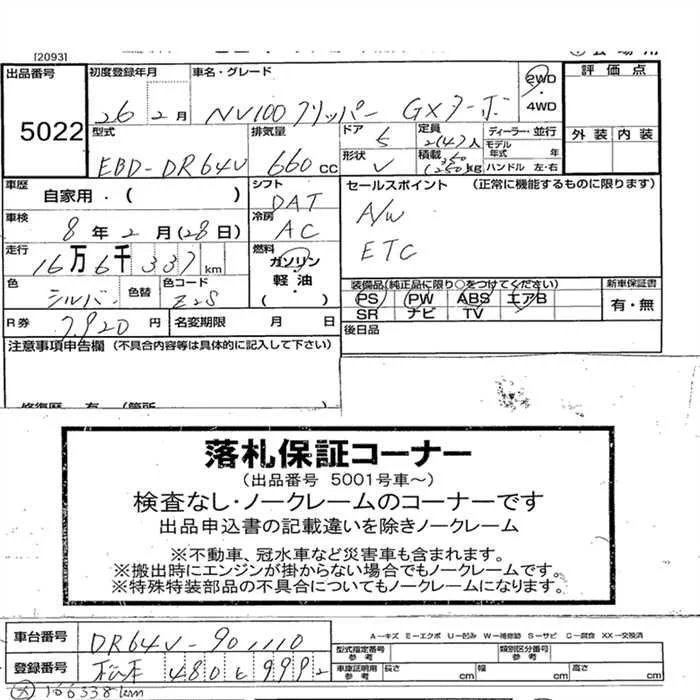 [2093]
出品番号 初度登録年月 車名・グレード 2WD・4WD 評価点
5022 26 2月 NV100クリッパー GXターボ
型式 排気量 ドア 5 定員 2(4)人 ディーラー・並行 外装 内装
EBD-DR64V 660cc 形状 V 積載 350(250)kg モデル年式 年 ハンドル 左・右
車歴 自家用・( ) シフト DAT セールスポイント (正常に機能するものに限ります)
車検 8年2月(28日) 冷房 AC A/W
走行 16万6千337km 燃料 ガソリン・軽油・( ) ETC
色 シルバー 色替 色コード Z2S 装備品(純正品に限り○をつけてください) 新車保証書
PS PW ABS エアB 有・無
R券 7,920円 名変期限 月 日 SR ナビ TV
注意事項申告欄 (不具合内容等は具体的に記入して下さい) 後日品
落札保証コーナー
(出品番号 5001号車~)
検査なし・ノークレームのコーナーです
出品申込書の記載違いを除きノークレーム
※不動車、冠水車など災害車も含まれます。
※搬出時にエンジンが掛からない場合でもノークレームです。
※特殊特装部品の不具合についてもノークレームになります。
車台番号 DR64V-901110 A-キズ E-エクボ U-凹み W-補修跡 S-サビ C-腐食 XX-交換済
型式指定番号 類別区分番号
登録番号 松本 480 を 9992 車庫証明用参考 長さ cm 幅 cm 高さ cm
166338km